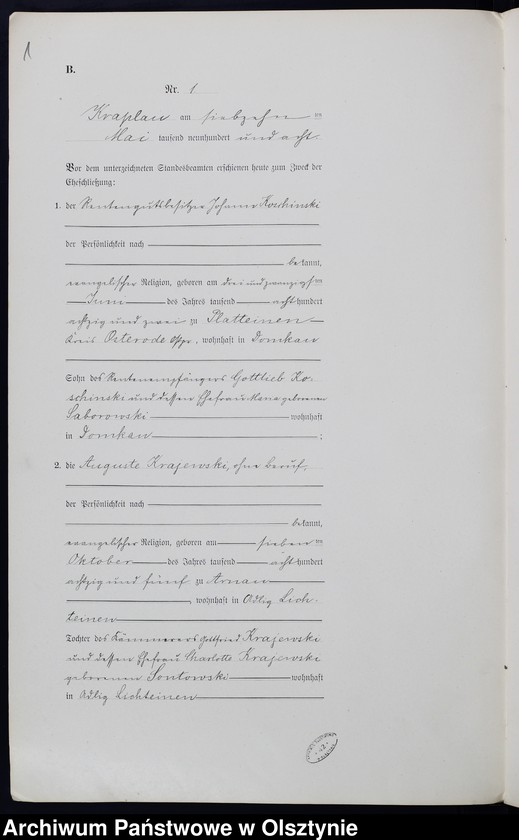 1
B.
Nr. 1
Kraplau am siebzehn ten
Mai tausend neunhundert und acht.
Vor dem unterzeichneten Standesbeamten erschienen heute zum Zweck der
Eheschließung:
1. der Rentengutsbesitzer Johann Koschinski
der Persönlichkeit nach
bekannt,
evangelischer Religion, geboren am drei und zwanzigsten
Juni des Jahres tausend acht hundert
achtzig und zwei zu Platteinen
Kreis Osterode Ostpr, wohnhaft in Domkau
Sohn des Rentenempfängers Gottlieb Ko-
schinski und dessen Ehefrau geborenen
Saborowski wohnhaft
in Domkau ;
2. die Auguste Krajewski, ohne Beruf,
der Persönlichkeit nach
bekannt,
evangelischer Religion, geboren am sieben ten
Oktober des Jahres tausend acht hundert
achtzig und fünf zu Arnau
, wohnhaft in Adlig Lich-
teinen
Tochter des Kämmerers Gottfried Krajewski
und dessen Ehefrau Charlotte Krajewski
geborenen Sontowski wohnhaft
in Adlig Lichteinen
Archiwum Państwowe w Olsztynie